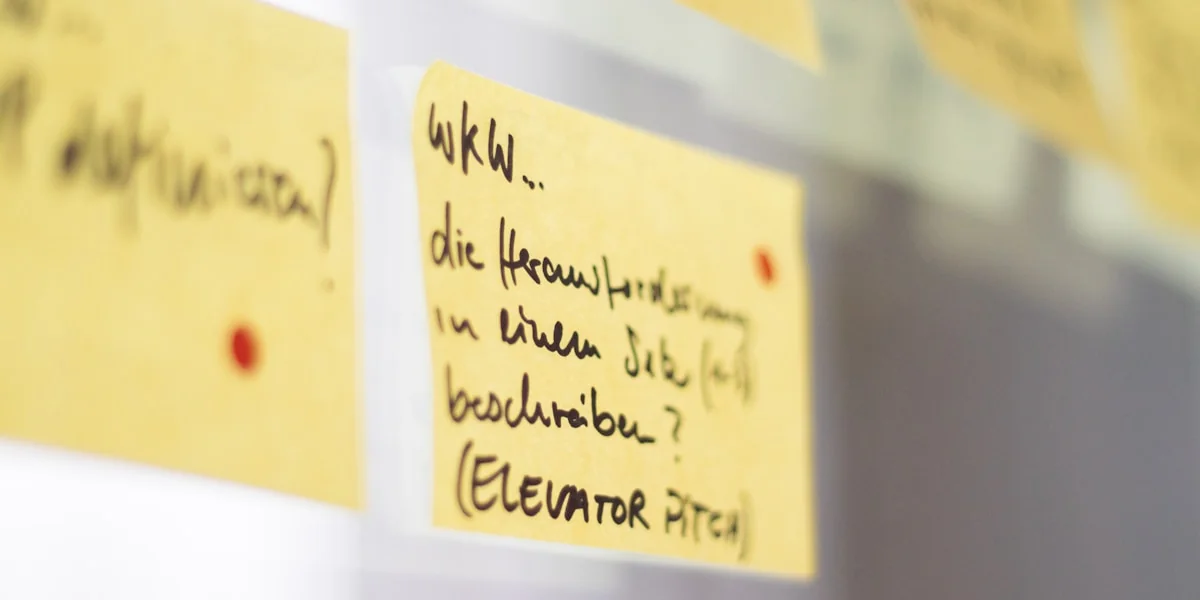 definieren?
WKW...
die Herausforderung
in einem Satz (+1)
beschreiben?
(ELEVATOR PITCH)